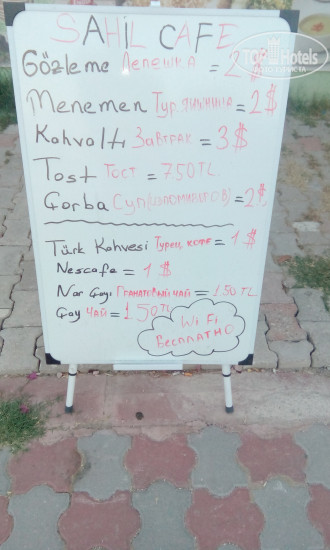 SAHİL CAFE
Gözleme Лепешка = 2$
Menemen Тур. яичница = 2$
Kahvaltı Завтрак = 3$
Tost Тост = 750TL
Çorba Суп = 2$
Türk Kahvesi Турец. кофе = 1$
Nescafe = 1$
Nar Çayı Гранатовый чай = 150 TL
Çay чай = 150 TL
Wi Fi
Бесплатно
Top Hotels